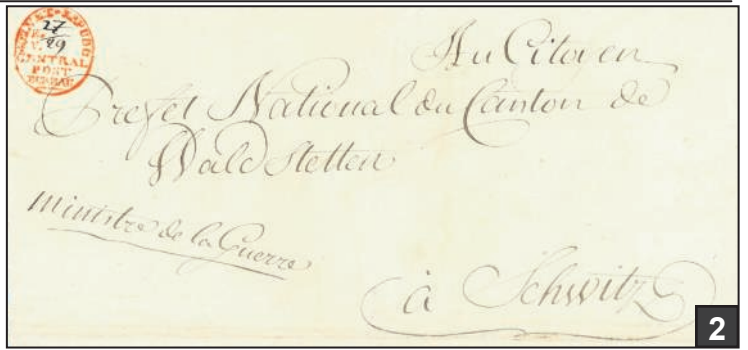 27
29
V.
CENTRAL
POST
BUREAU
Au Citoyen
Prefet National du Canton de
Waldstetten
Ministre de la Guerre
à Schwitz
2